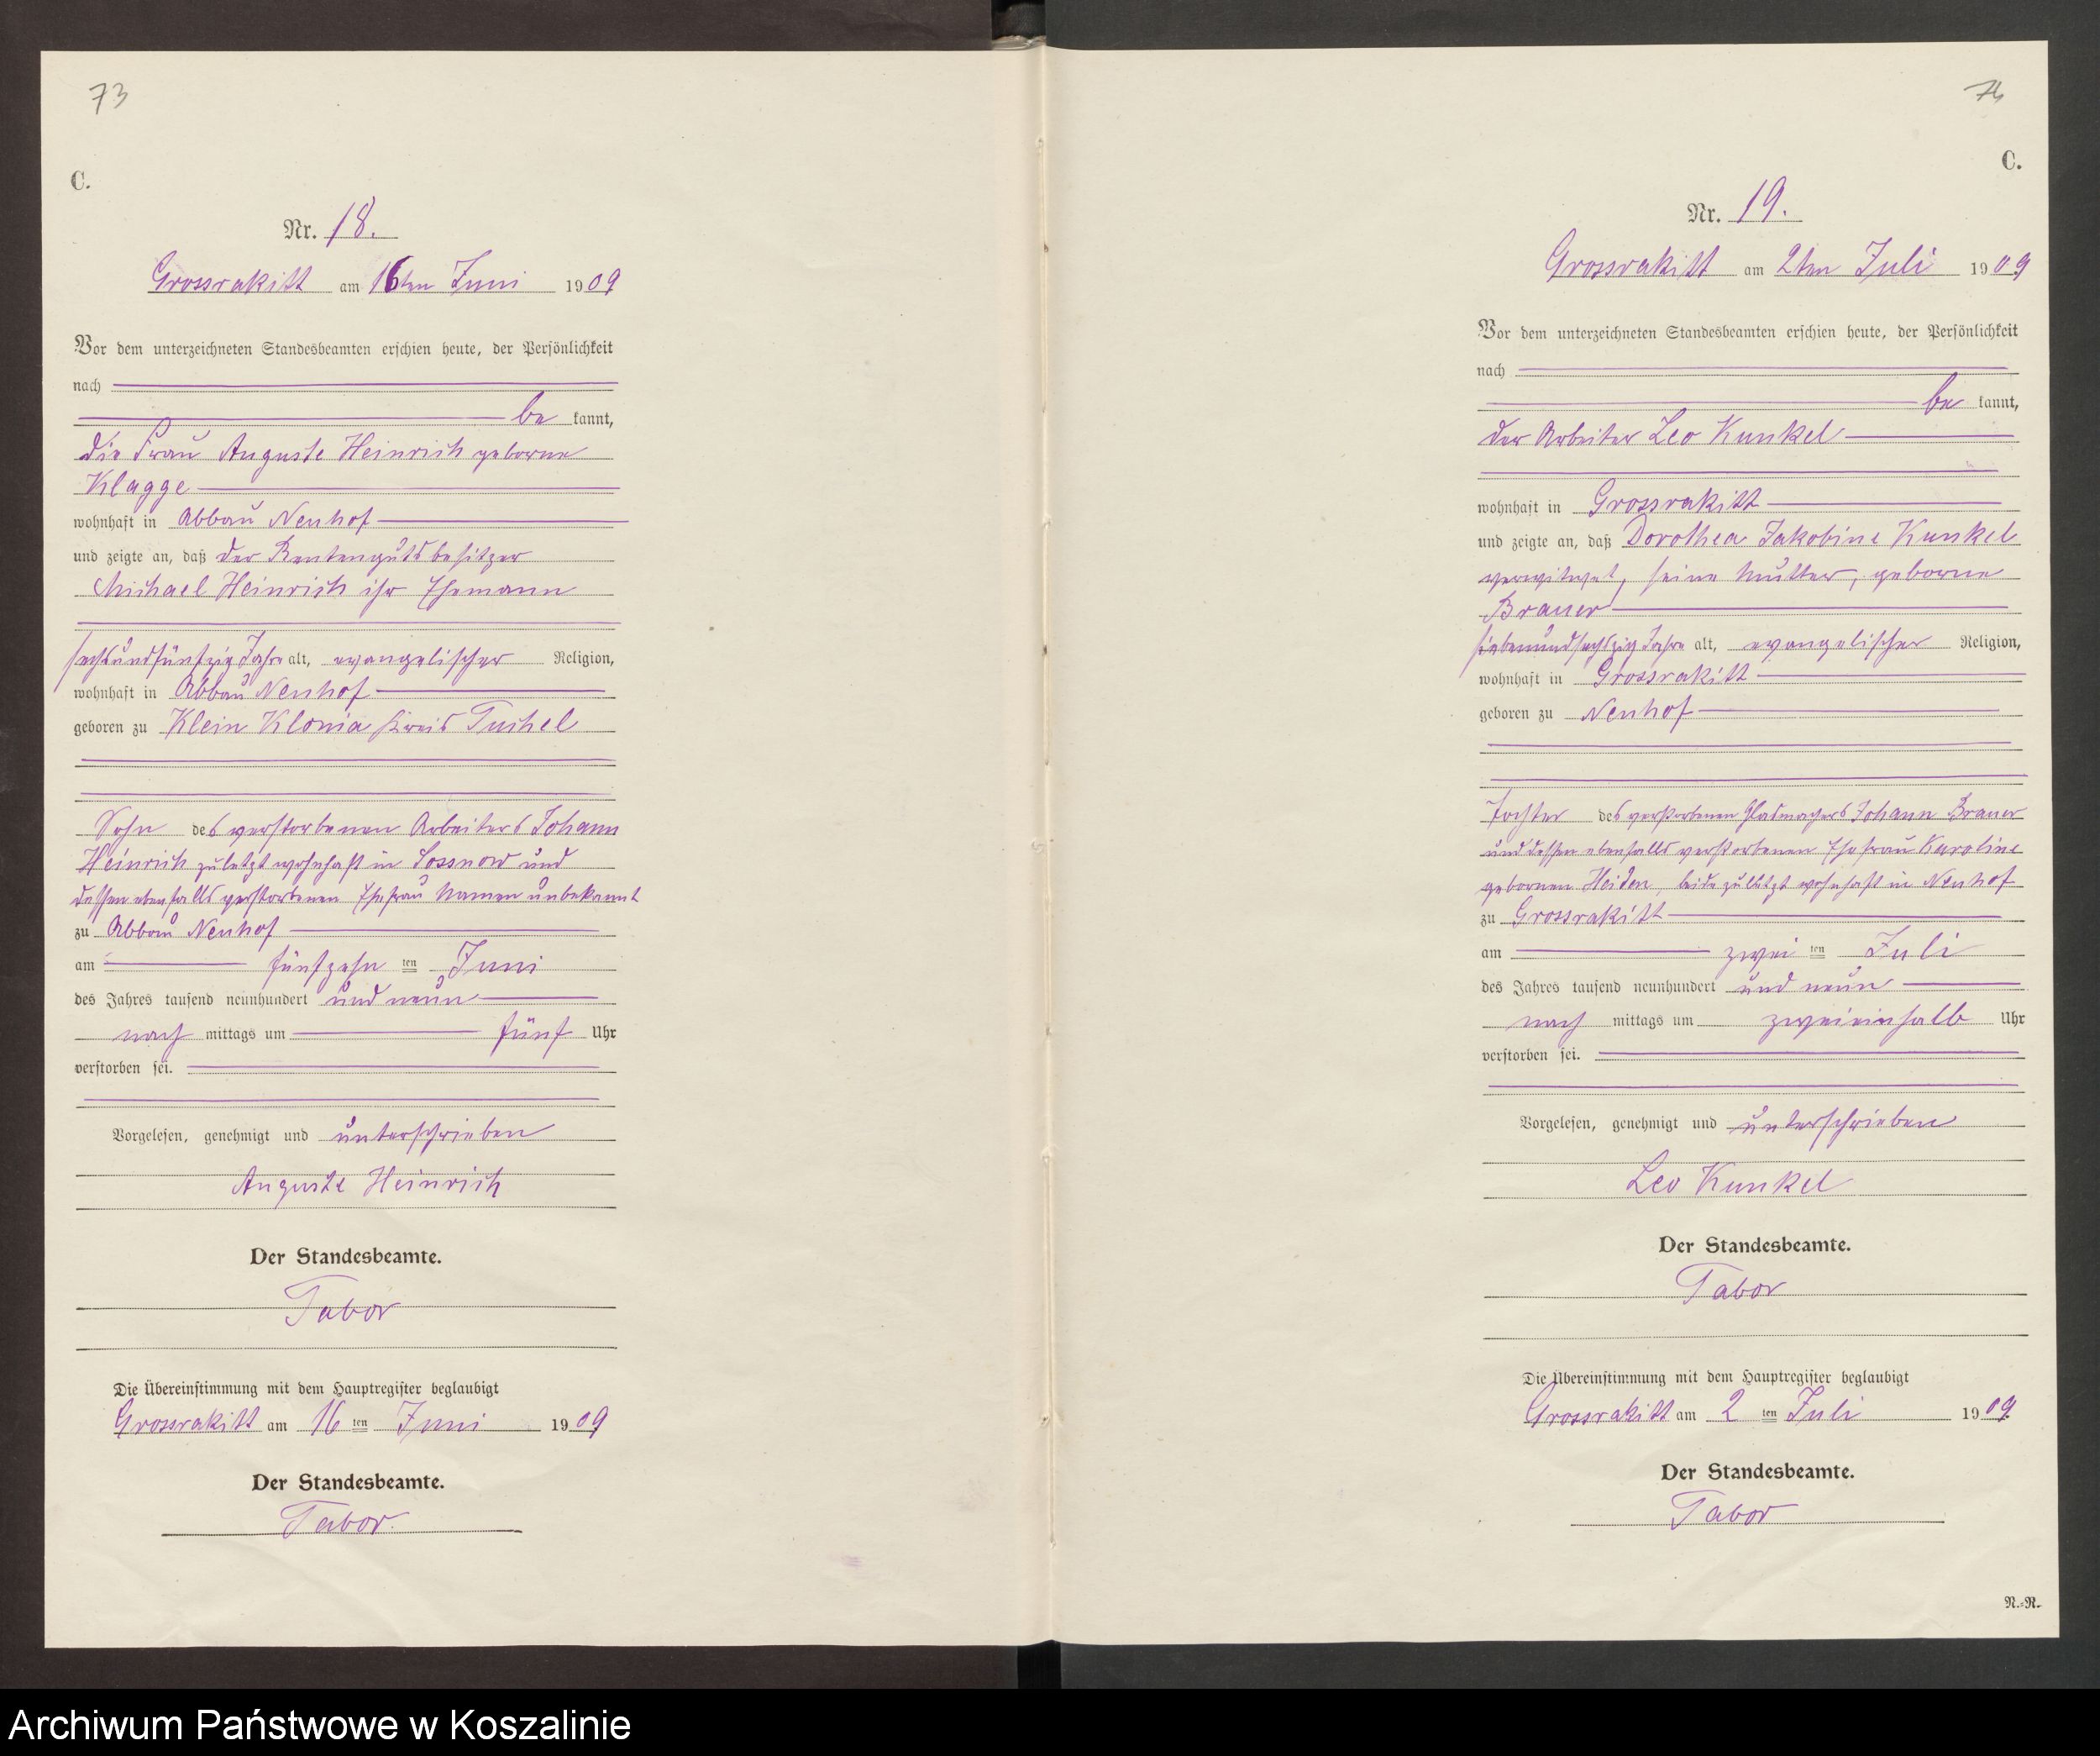 73
C.
Nr. 18.
Grossrakitt am 16ten Juni 1909
Vor dem unterzeichneten Standesbeamten erschien heute, der Persönlichkeit
nach
be kannt,
die Frau Auguste Heinrich geborne
Klagge
wohnhaft in Abbau Neuhof
und zeigte an, daß der Rentengutsbesitzer
Michael Heinrich ihr Ehemann
sechsundfünfzig Jahre alt, evangelischer Religion,
wohnhaft in Abbau Neuhof
geboren zu Klein Klonia Kreis Tuchel
Sohn des verstorbenen Arbeiters Johann
Heinrich zuletzt wohnhaft in Sossnow und
dessen ebenfalls verstorbenen Ehefrau Namen unbekannt
zu Abbau Neuhof
am fünfzehn ten Juni
des Jahres tausend neunhundert und neun
nach mittags um fünf Uhr
verstorben sei.
Vorgelesen, genehmigt und unterschrieben
Auguste Heinrich
Der Standesbeamte.
Tabor
Die Übereinstimmung mit dem Hauptregister beglaubigt
Grossrakitt am 16 ten Juni 1909
Der Standesbeamte.
Tabor.
74
C.
Nr. 19.
Grossrakitt am 2ten Juli 1909
Vor dem unterzeichneten Standesbeamten erschien heute, der Persönlichkeit
nach
be kannt,
der Arbeiter Leo Kunkel
wohnhaft in Grossrakitt
und zeigte an, daß Dorothea Jakobine Kunkel
verwitwet, seine Mutter, geborne
Brauer
siebenundsechszig Jahre alt, evangelischer Religion,
wohnhaft in Grossrakitt
geboren zu Neuhof
Tochter des verstorbenen Glasmachers Johann Brauer
und dessen ebenfalls verstorbenen Ehefrau Karoline
gebornen Heiden, beide zuletzt wohnhaft in Neuhof
zu Grossrakitt
am zwei ten Juli
des Jahres tausend neunhundert und neun
nach mittags um zweieinhalb Uhr
verstorben sei.
Vorgelesen, genehmigt und unterschrieben
Leo Kunkel
Der Standesbeamte.
Tabor
Die Übereinstimmung mit dem Hauptregister beglaubigt
Grossrakitt am 2 ten Juli 1909.
Der Standesbeamte.
Tabor
N.-R.
Archiwum Państwowe w Koszalinie